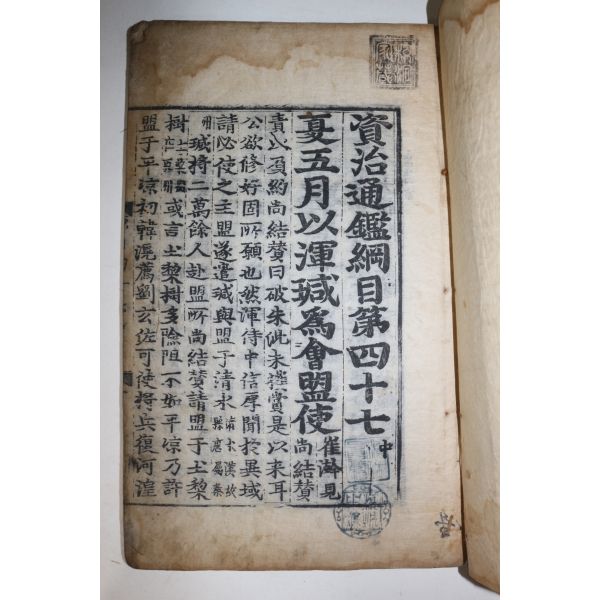 資治通鑑綱目第四十七中
夏五月以渾瑊爲會盟使
崔澣見
尚結贊
責以負約尚結贊曰破朱泚未獲賞是以來耳
公欲修好固所願也然渾侍中信厚聞於異域
請必使之主盟遂遣瑊與盟于清水
瑊將二萬餘人赴盟所尚結贊請盟于土梨
樹
或言土梨樹多險阻不如平凉乃許
盟于平凉初韓滉薦劉玄佐可使將兵復河湟